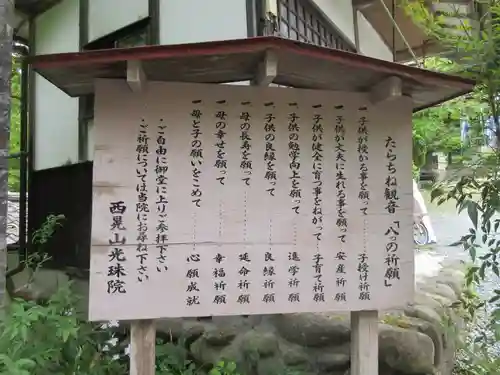 たらちね観音「八つの祈願」
一、子供が授かる事を願って……子授け祈願
一、子供が丈夫に生れる事を願って……安産祈願
一、子供が健全に育つ事をねがって…子育て祈願
一、子供の勉学向上を願って……進学祈願
一、子供の良縁を願って……良縁祈願
一、母の長寿を願って……延命祈願
一、母の幸せを願って……幸福祈願
一、母と子の願いをこめて……心願成就
・ご自由に御堂に上りご参拝下さい
・ご祈願については当院にお尋ね下さい
西晃山光珠院